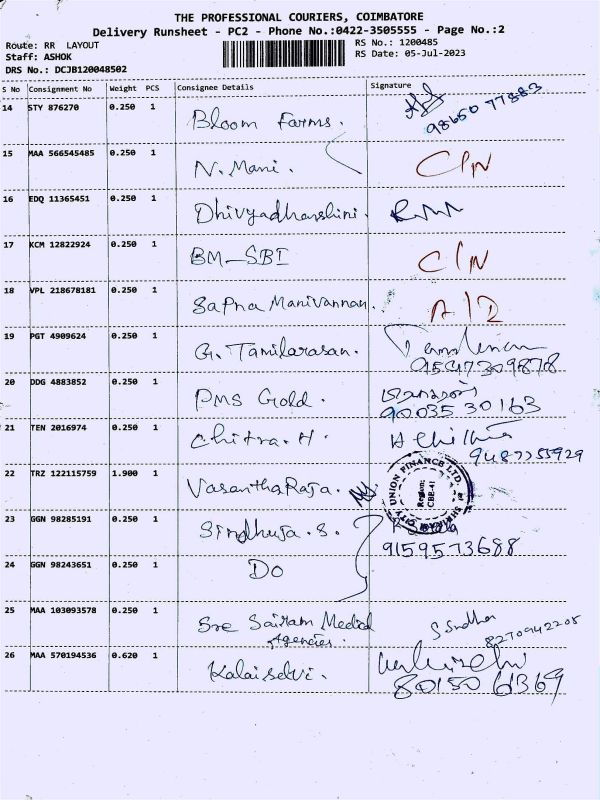 THE PROFESSIONAL COURIERS, COIMBATORE
Delivery Runsheet - PC2 - Phone No.:0422-3505555 - Page No.:2
Route: RR LAYOUT
RS No.: 1200485
Staff: ASHOK
RS Date: 05-Jul-2023
DRS No.: DCJB120048502
S No Consignment No Weight PCS Consignee Details Signature
14 STY 876270 0.250 1 Bloom Farms. 98650 77883
15 MAA 566545485 0.250 1 N. Mani. C/N
16 EDQ 11365451 0.250 1 Dhivyadharshini.
17 KCM 12822924 0.250 1 BM-SBI C/N
18 VPL 218678181 0.250 1 Sapna Manivannan. A/D
19 PGT 4909624 0.250 1 G. Tamilarasan.
20 DDG 4883852 0.250 1 PMS Gold. 90035 30163
21 TEN 2016974 0.250 1 Chitra. H.
22 TRZ 122115759 1.900 1 VasanthaRaja.
CITY UNION FINANCE LTD.
Region:
CBE-4
23 GGN 98285191 0.250 1 Sindhuja. S. 9159573688
24 GGN 98243651 0.250 1 Do
25 MAA 103093578 0.250 1 Sre Sairam Medical
Agencies. 8270942205
26 MAA 570194536 0.620 1 Kalaiselvi.